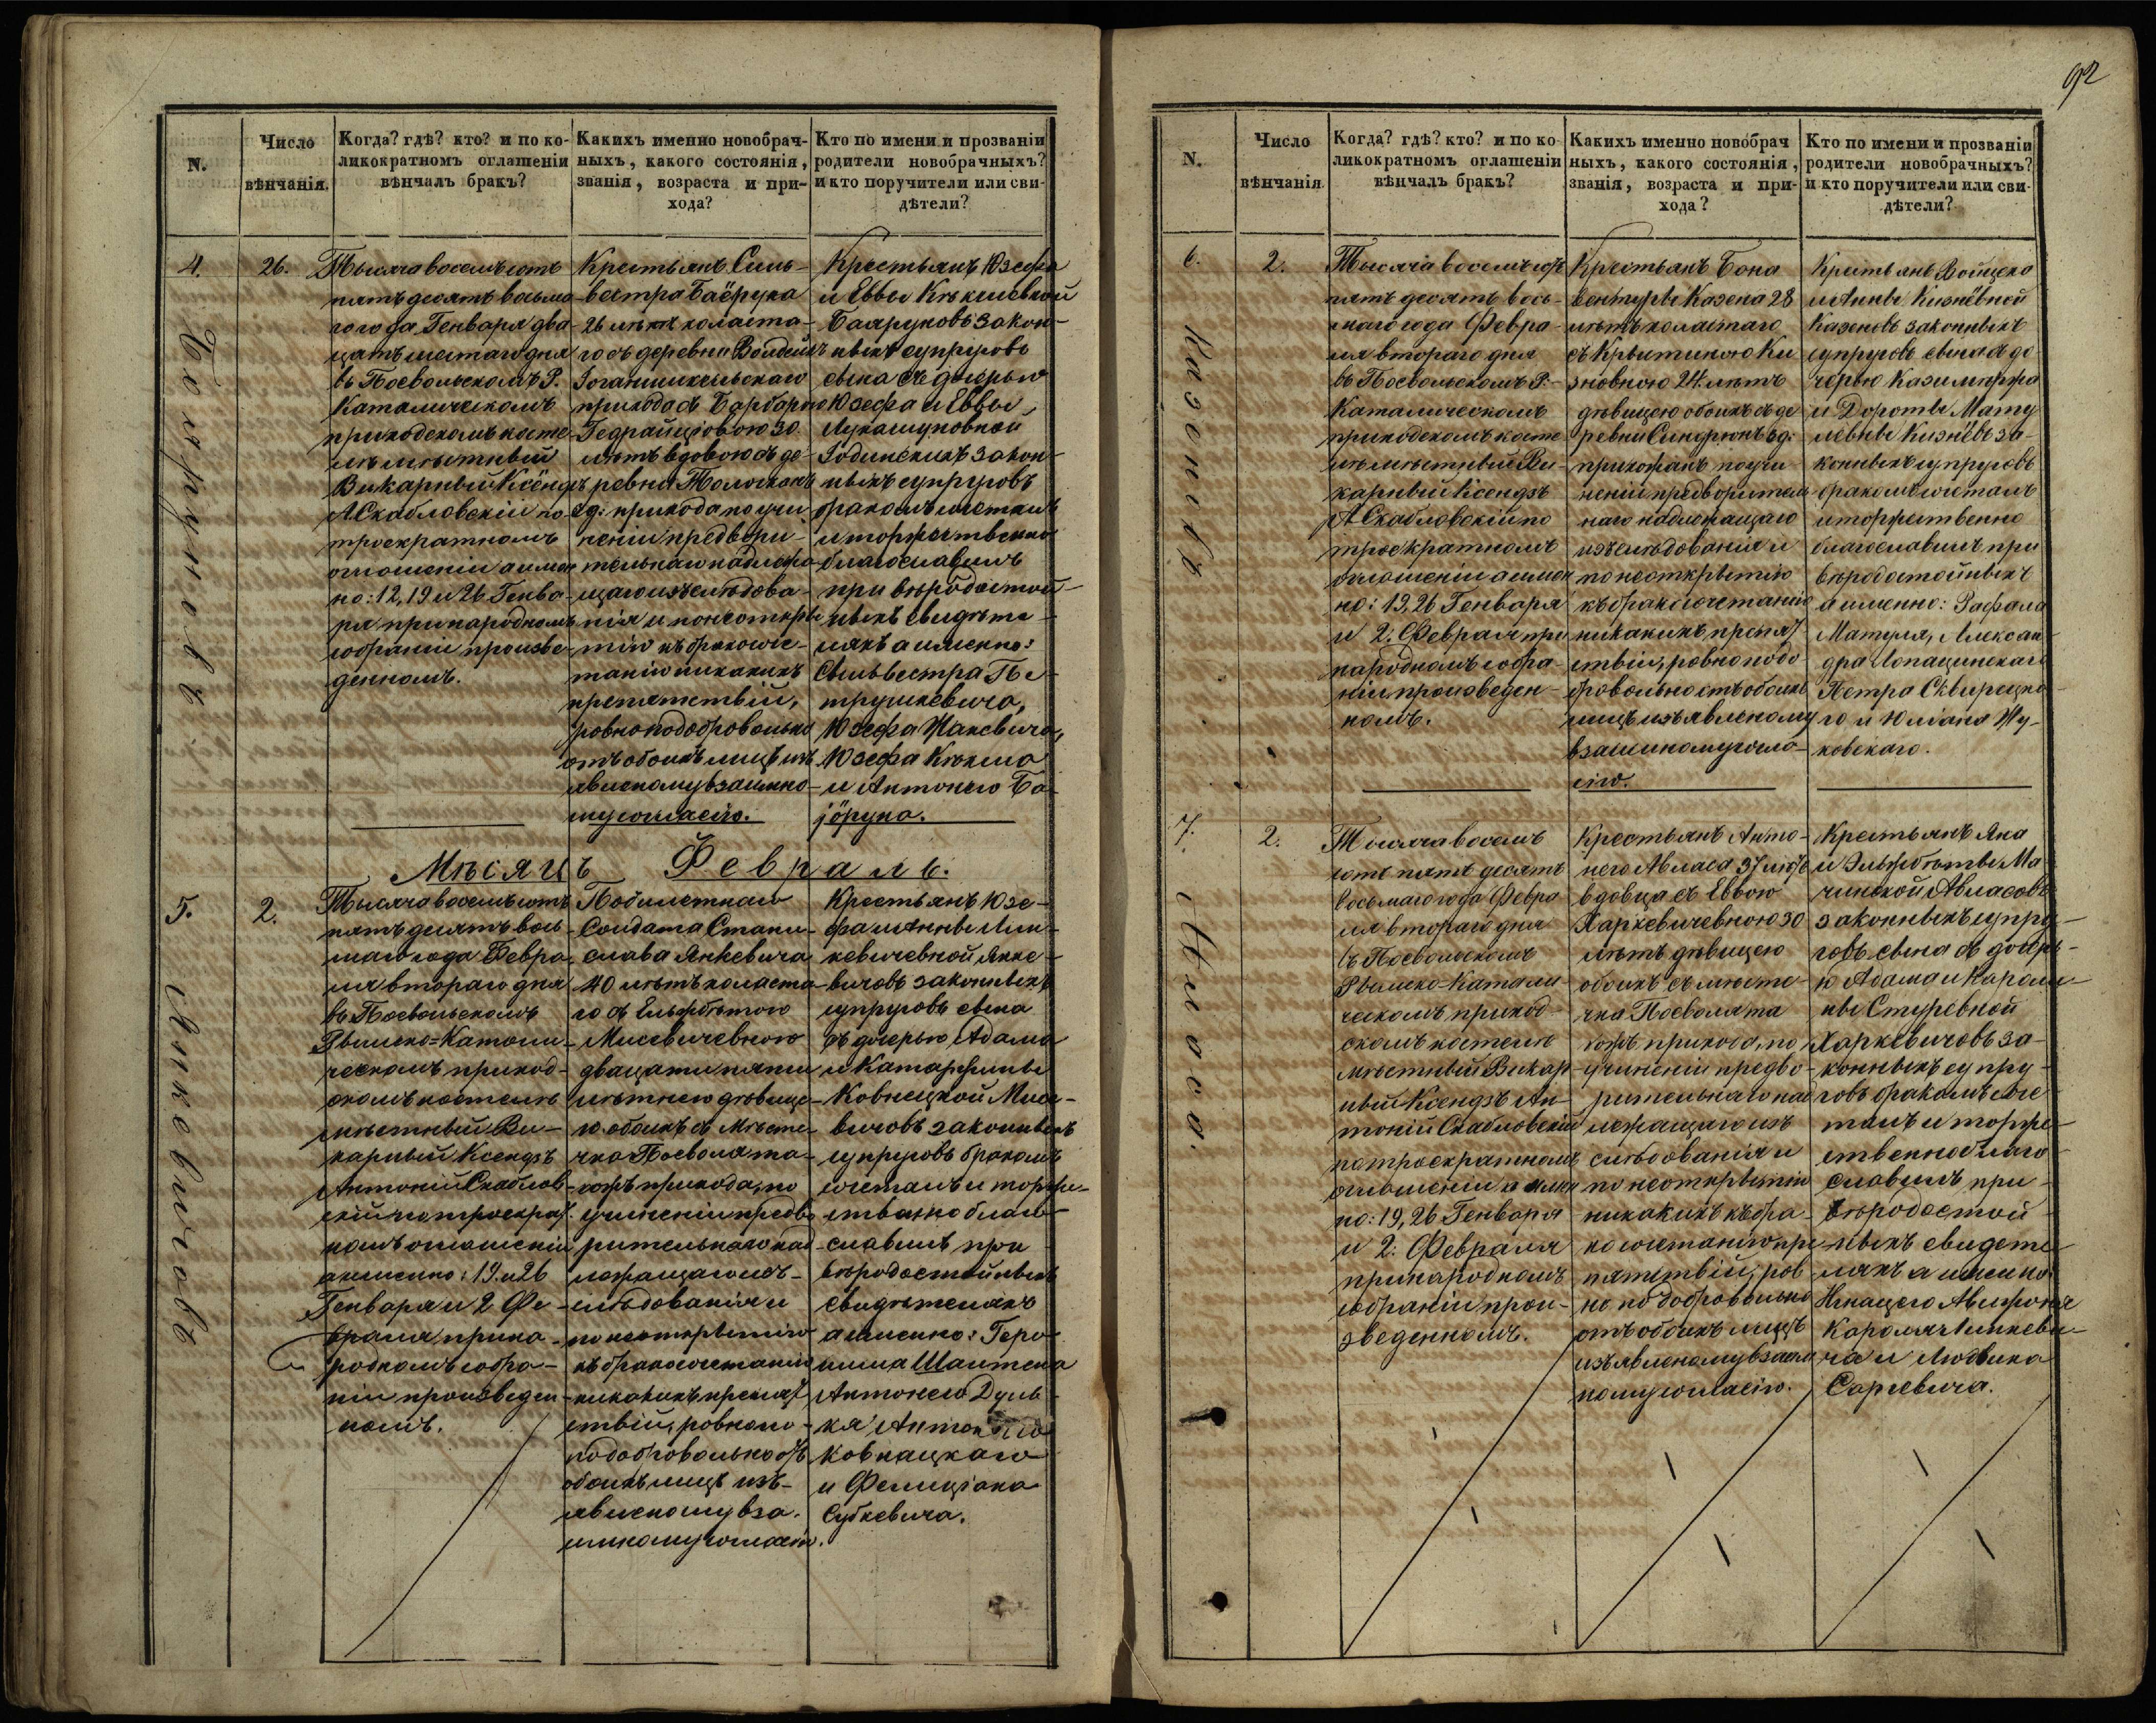 92
N.
Число
вѣнчанія.
Когда? гдѣ? кто? и по ко-
ликократномъ оглашеніи
вѣнчалъ бракъ?
Какихъ именно новобрач-
ныхъ, какого состоянія,
званія, возраста и при-
хода?
Кто по имени и прозваніи
родители новобрачныхъ?
и кто поручители или сви-
дѣтели?
4.
26.
Тысяча восемьсотъ
пятьдесятъ восьма
го года Генваря два
цать шестаго дня
въ Посвольскомъ Р.
Католическомъ
приходскомъ косте
лѣ мѣстный
Викарный Ксёндзъ
А. Скабловскій по
троекратномъ
оглошеніи а имен
но: 12, 19 и 26 Генва-
ря при народномъ
собраніи произве-
денномъ.
Крестьянъ Силь-
вестра Баёруна
26 лѣтъ холоста-
го съ деревни
Іоганишкельскаго
прихода съ Барбарою
30
лѣтъ вдовою съ де-
ревни
прихода по учи
неніи предвори-
тельнаго надлежа
щаго изслѣдова-
нія и по неоткры
тію къ бракосоче-
танію никакихъ
препятствій,
ровно по добровольно
отъ обоихъ лицъ изъ
явленому взаимно-
му согласію.
Крестьянъ Юзефа
и Еввы
Баяруновъ закон-
ныхъ супруговъ
сына съ дочерью
Юзефа и Еввы
Лукашуновной
закон-
ныхъ супруговъ
бракомъ сочеталъ
и торжественно
благославилъ
при вѣродостой-
ныхъ свидѣте-
ляхъ а именно:
Сильвестра Пе-
трушкевича,
Юзефа
Юзефа
и Антонего Ба-
йоруна.
Баяруновъ
Мѣсяцъ Февраль.
5.
2.
Тысяча восемьсотъ
пятьдесятъ вось
маго года Февра
ля втораго дня
въ Посвольскомъ
Римско=Католи-
ческомъ приход-
скомъ костелѣ
мѣстный Ви-
карный Ксендзъ
Антоній Скаблов-
скій по троекрат.
номъ оглошеніи
а именно: 19. и 26
Генваря и 2 Фе-
враля при на-
родномъ собра-
ніи произведен-
номъ.
Побилетнаго
Солдата Стани-
слава Янкевича
40 лѣтъ холоста-
го съ Ельжбѣтою
Мисевичевною
двацати пяти
лѣтнею дѣвице-
ю обоихъ съ Мѣсте
чка Посволя та-
гожъ прихода, по
учиненіи предво
рительнаго над
лежащаго изъ-
слѣдованія и
по неоткрытію
къ бракосочетанію
никакихъ препят
ствій, ровно
по добровольно отъ
обоихъ лицъ изъ-
явленому вза.
имному согласію.
Крестьянъ Юзе-
фа и Анны Лин-
кевичевной Янке-
вичовъ законныхъ
супруговъ сына
съ дочерью Адама
и Катаржины
Ковнецкой Мисе-
вичовъ законныхъ
супруговъ бракомъ
сочеталъ и торже-
ственно благо-
славилъ при
вѣродостойныхъ
свидѣтеляхъ
а именно: Геро-
нима
Антонего
Антонего
Ковнацкаго
и Фелиціана
Субкевича.
Янкевичовъ
N.
Число
вѣнчанія
Когда? гдѣ? кто? и по ко-
ликократномъ оглашеніи
вѣнчалъ бракъ?
Какихъ именно новобрач
ныхъ, какого состоянія,
званія, возраста и при-
хода?
Кто по имени и прозваніи
родители новобрачныхъ?
и кто поручители или сви-
дѣтели?
6.
2.
Тысяча восемьсотъ
пятьдесятъ вось-
маго года Февра-
ля втораго дня
въ Посвольскомъ Р.-
Католическомъ
приходскомъ косте
лѣ мѣстный Ви-
карный Ксендзъ
А Скабловскій по
троекратномъ
оглошеніи а имен
но: 19, 26 Генваря
и 2. Февраля при
народномъ собра-
ніи произведен-
номъ.
Крестьянъ Бона
вентуры Казена 28
лѣтъ холостаго
съ Крыстиною Ки
зновною 24. лѣтъ
дѣвицею обоихъ съ де
ревни
прихожанъ по учи
неніи предворитель
наго надлежащаго
изъслѣдованія и
по неоткрытію
къ бракосочетанію
никакихъ препят
ствій, ровно по до
бровольно отъ обоихъ
лицъ изъявленому
взаимному согла-
сію.
Крестьянъ Войцеха
и Анны
Казеновъ законныхъ
супруговъ сына съ до
черью Казимиржа
и Дороты Мату
левны за-
конныхъ супруговъ
бракомъ сочеталъ
и торжественно
благославилъ при
вѣродостойныхъ
а именно: Рафала
Матуля, Алексан-
дра Лопацинскаго
Петра Сквирецка-
го и Юліана Жу-
ковскаго.
Казеновъ
7.
2.
Тысяча восемь
сотъ пятьдесятъ
восьмаго года Февра
ля втораго дня
въ Посвольскомъ
Римско-Католи
ческомъ приход
скомъ костелѣ
мѣстный Викар-
ный Ксендзъ Ан-
тоній Скабловскій
по троекратномъ
оглошеніи а имен
но: 19, 26 Генваря
и 2. Февраля
при народномъ
собраніи прои-
зведенномъ.
Крестьянъ Анто-
него Авласа 37 лѣтъ
вдовца съ Еввою
Харкевичевною 30
лѣтъ дѣвицею
обоихъ съ мѣсте-
чка Посволя та
гожъ прихода, по
учиненіи предво-
рительнаго над
лежащаго изъ
слѣдованія и
по неоткрытію
никакихъ къ бра-
косочетанію пре
пятствій, ров
но по добровольно
отъ обоихъ лицъ
изъявленому взаим
ному согласію.
Крестьянъ Яна
и Эльжбѣты Ма-
Авласовъ
законныхъ супру-
говъ сына съ дочерь-
ю Адама и Кароли-
ны
Харкевичовъ за-
конныхъ супру-
говъ бракомъ соче
талъ и торже-
ственно благо
славилъ при
вѣродостой-
ныхъ свидете-
ляхъ а именно:
Игнацего
Кароля Линкеви-
ча и Людвика
Саргевича.
Авласа.